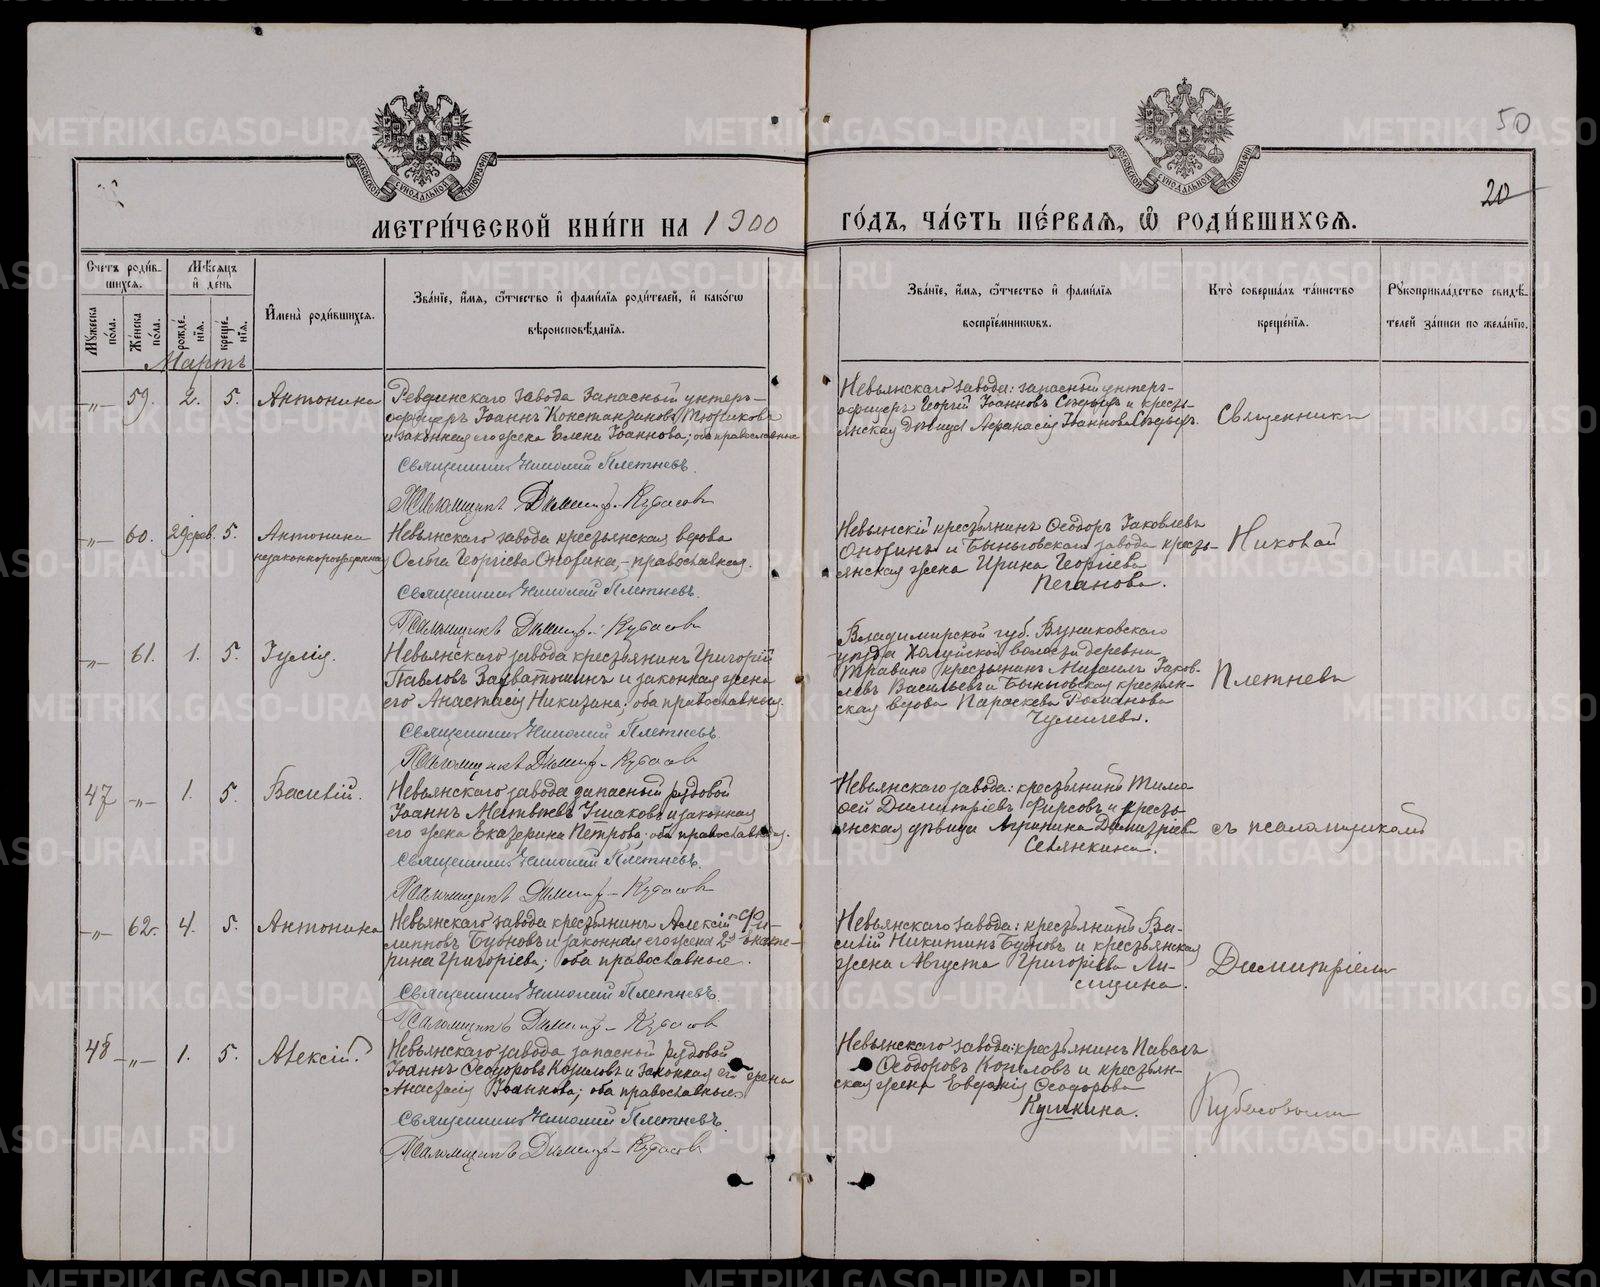 50
20
МЕТРИ́ЧЕСКОЙ КНИ́ГИ НА 1900
ГО́ДЪ, ЧА́СТЬ ПЕ́РВАѦ, Ѽ РОДИ́ВШИХСѦ.
Счетъ роди́в-
шихсѧ.
Мѣсѧцъ
и҆ де́нь
Мꙋжеска
по́ла.
Же́нска
по́ла.
рожде́-
нїѧ.
креще́-
нїѧ.
И҆мена̀ роди́вшихсѧ.
Зва́нїе, и҆́мѧ, ѻ҆́тчество и҆ фами́лїѧ роди́телей, и҆ како́гѡ
вѣроисповѣ́данїѧ.
Зва́нїе, и҆́мѧ, ѻ҆́тчество и҆ фами́лїѧ
воспрїе́мникѡвъ.
Кто̀ соверша́лъ та́инство
креще́нїѧ.
Рꙋкоприкла́дство свидѣ́-
телей за́писи по жела́нїю.
Мартъ
-„- 59. 2. 5. Антонина
Ревдинскаго завода запасный унтеръ-
офицеръ Іоаннъ Константиновъ
и законная его жена Елена Іоаннова; оба православные
Священникъ Николай Плетневъ.
Псаломщикъ Димитр. Кубасовъ
Невьянскаго завода: запасный унтеръ-
офицеръ Георгій Іоанновъ и кресть-
янская дѣвица Іоаннова
Священникъ
-„- 60. 29 фев. 5. Антонина
незаконнорожденная
Невьянскаго завода крестьянская вдова
Ольга Георгіева Опорина,-православная.
Священникъ Николай Плетневъ.
Псаломщикъ Димитр. Кубасовъ
Невьянскій крестьянинъ Ѳеодоръ Іаковлевъ
Опоринъ и Быньговскаго завода кресть-
янская жена Ирина Георгіева
Пеганова.
Николай
-„- 61. 1. 5. Іулія.
Невьянскаго завода крестьянинъ Григорій
Павловъ Захватошинъ и законная жена
его Анастасія Никитина; оба православные.
Священникъ Николай Плетневъ.
Псаломщикъ Димитр. Кубасов
Владимирской губ. Вязниковскаго
уѣзда Холуйской волости деревни
Травино крестьянинъ Михаилъ Іаков-
левъ Васильевъ и Быньговская крестьян-
ская вдова Параскева Романова
Чумичева.
Плетневъ
47 -„- 1. 5. Василій.
Невьянскаго завода запасный рядовой
Іоаннъ Матвѣевъ Ушаковъ и законная
его жена Екатерина Петрова; оба православные.
Священникъ Николай Плетневъ.
Псаломщикъ Димитр. Кубасовъ
Невьянскаго завода: крестьянинъ Тимо-
ѳей Димитріевъ Фирсовъ и кресть-
янская дѣвица Агрипина Димитріева
Селянкина.
съ псаломщикомъ
-„- 62. 4. 5. Антонина
Невьянскаго завода крестьянинъ Алексій Фи-
липповъ Бубновъ и законная его жена 2я Екате-
рина Григоріева; оба православные.
Священникъ Николай Плетневъ.
Псаломщикъ Димитр. Кубасов
Невьянскаго завода: крестьянинъ Ва-
силій Никитинъ Бубновъ и крестьянская
жена Августа Григоріева Ли-
сицина.
Димитріемъ
48 -„- 1. 5. Алексій.
Невьянскаго завода запасный рядовой
Іоаннъ Ѳеодоровъ Копыловъ и законная его жена
Анастасія Іоаннова; оба православные
Священникъ Николай Плетневъ.
Псаломщикъ Димитр. Кубасовъ
Невьянскаго завода: крестьянинъ Павелъ
Ѳеодоровъ Копыловъ и крестьян-
ская жена Евдокія Ѳеодорова
Кушкина.
Кубасовымъ